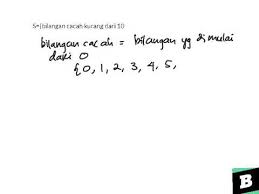 S={bilangan cacah kurang dari 10
bilangan cacah = bilangan yg dimulai
dari 0
{0, 1, 2, 3, 4, 5,
B